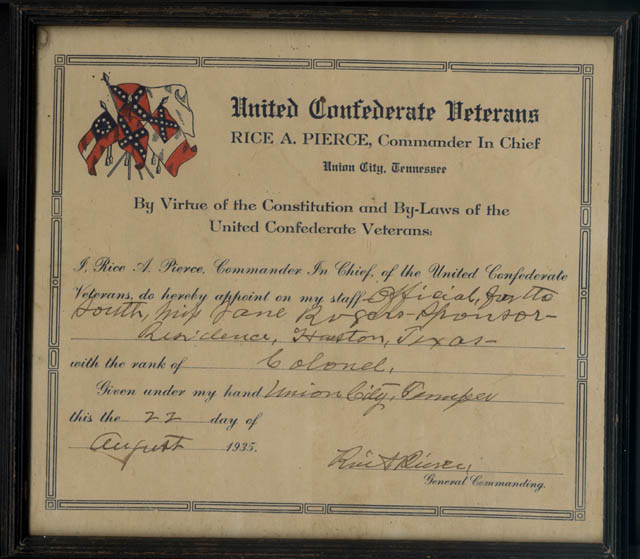 United Confederate Veterans
RICE A. PIERCE, Commander In Chief
Union City, Tennessee
By Virtue of the Constitution and By-Laws of the
United Confederate Veterans:
I, Rice A. Pierce, Commander In Chief, of the United Confederate
Veterans, do hereby appoint on my staff Official, for the
South, Miss Jane Rogers - Sponsor -
Residence, Houston, Texas -
with the rank of Colonel,
Given under my hand Union City,
this the 22 day of
August 1935.
Rice A Pierce,
General Commanding.